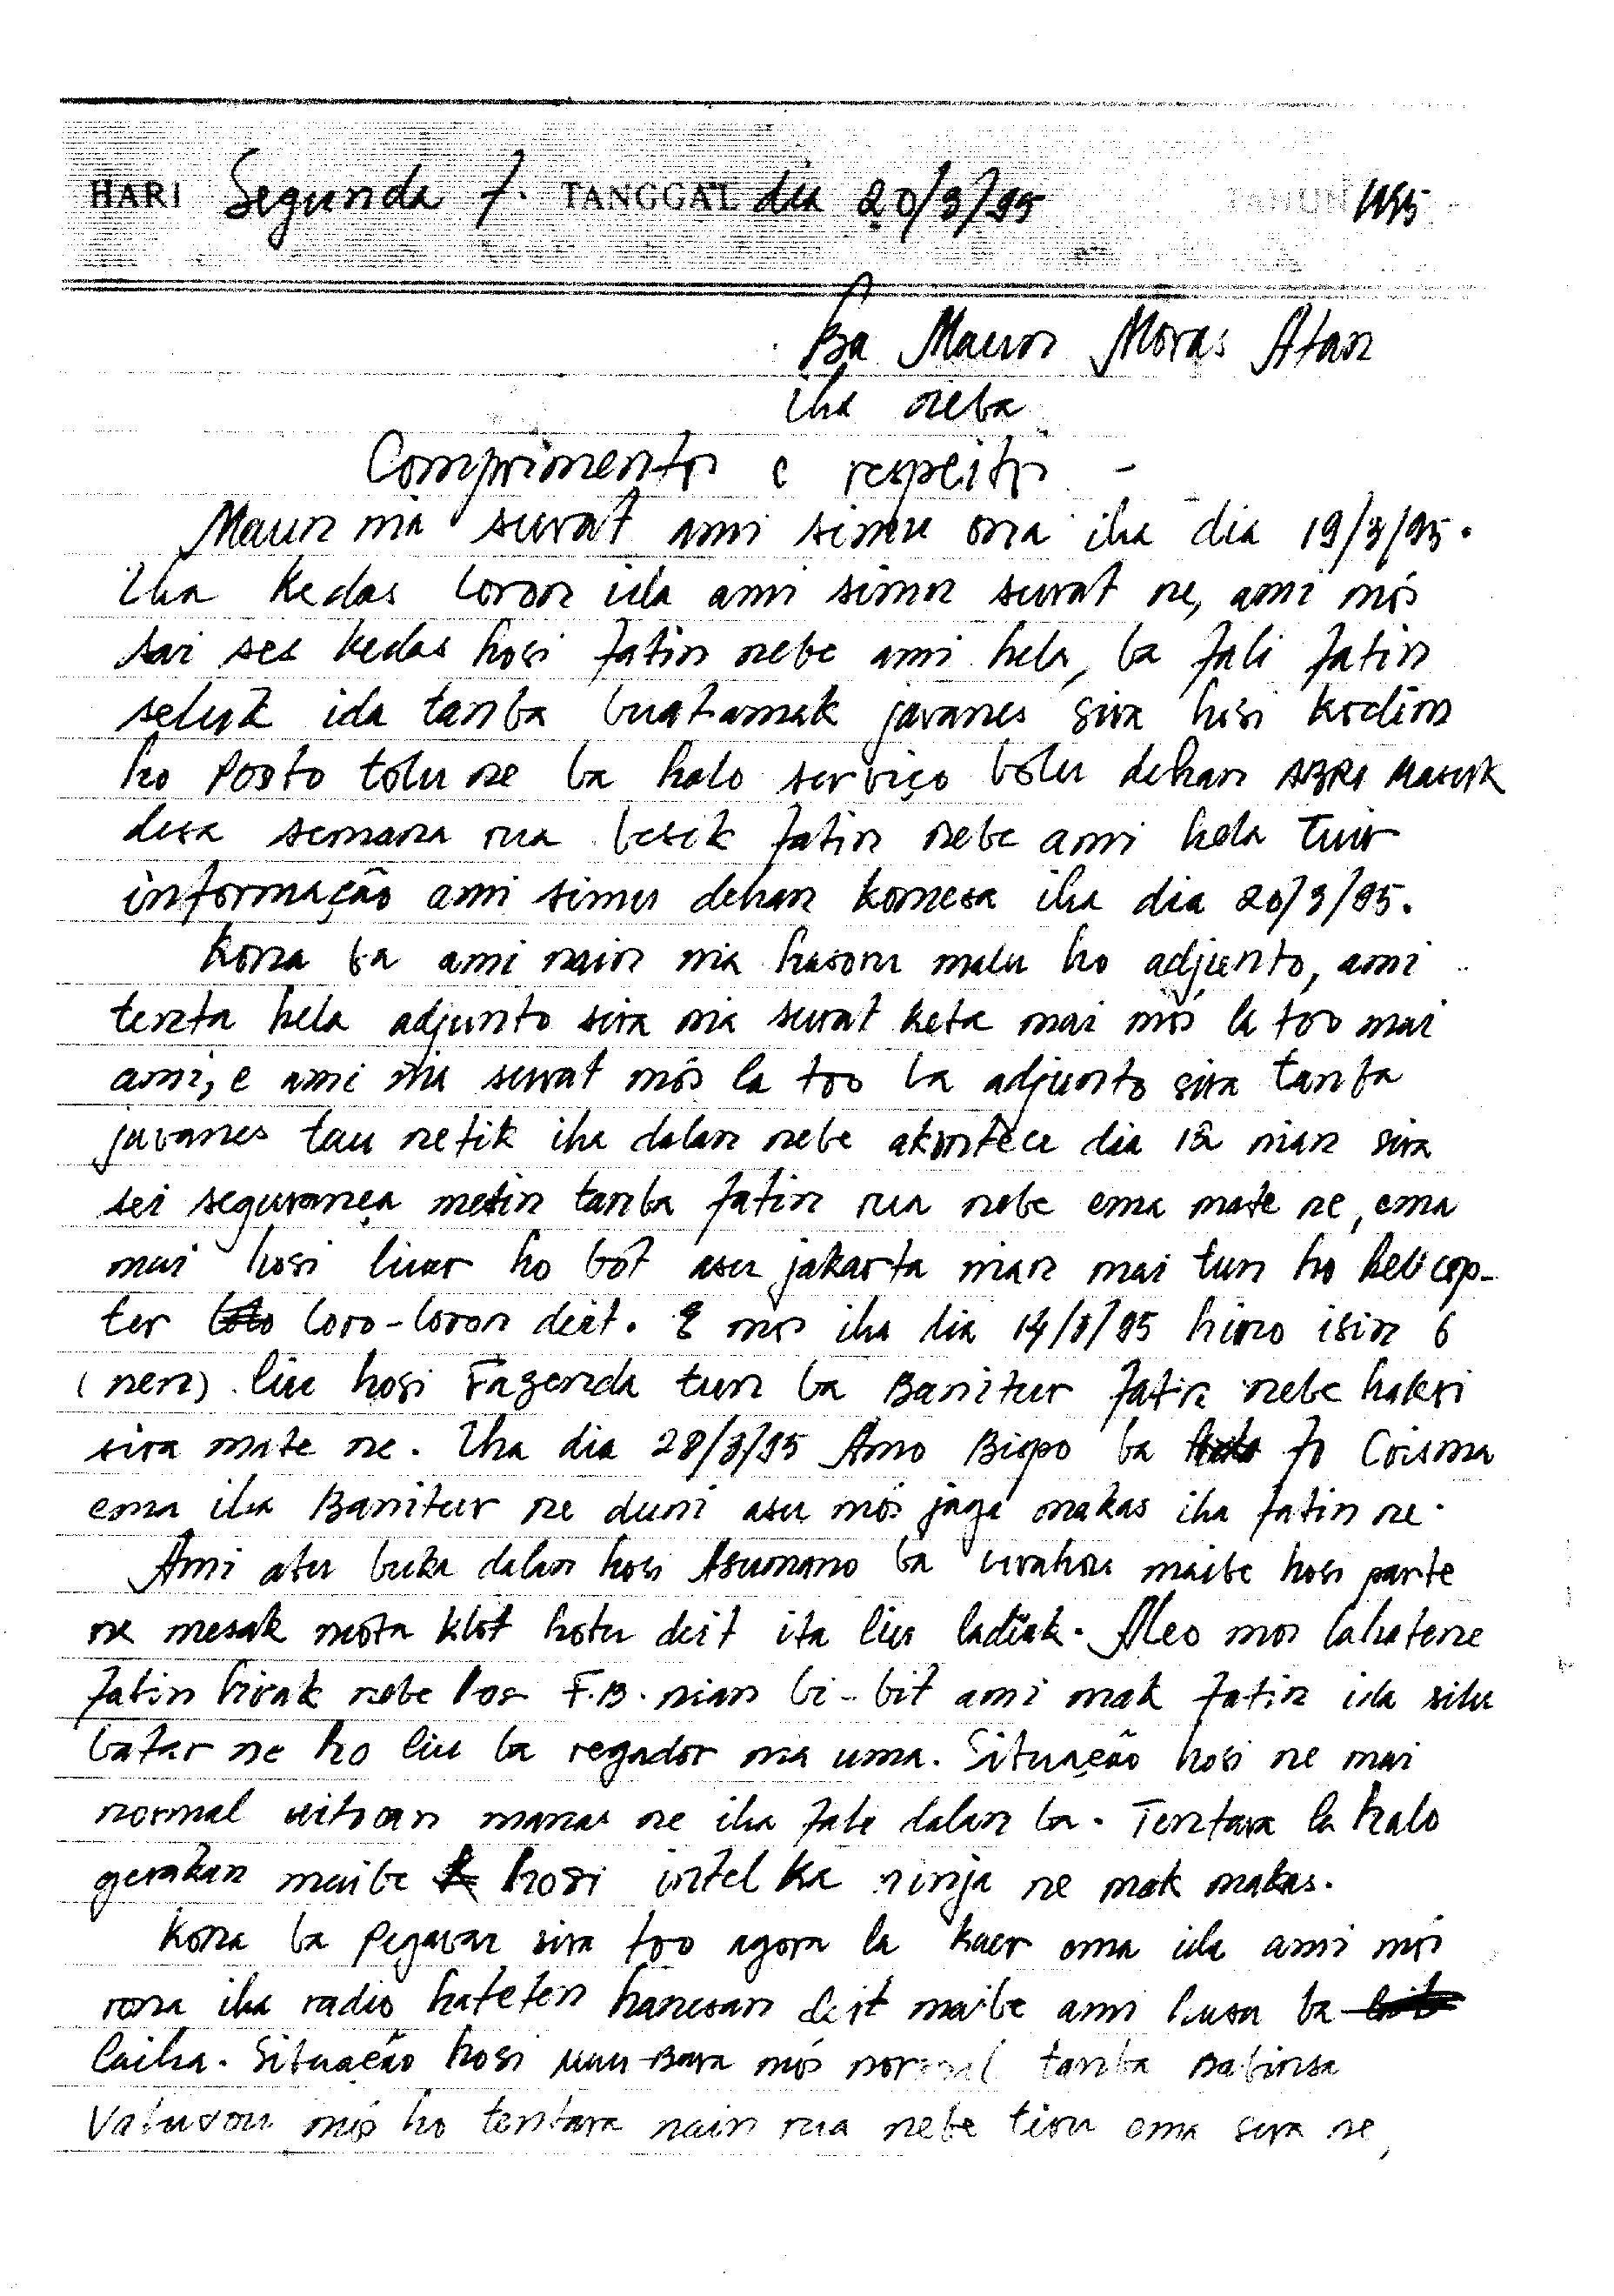 HARI Segunda f. TANGGAL dia 20/3/95 TAHUN 1995
Ba Maun Moras Atan
iha neba
Comprimento e respeito -
Maun nia surat ami simu ona iha dia 19/3/95.
Iha kedas loron ida ami simu surat ne, ami mós
sai ses kedas hosi fatin nebe ami hela, ba fali fatin
seluk ida tanba buat amak javanes sira hosi kodim
ho Posto tolu ne ba halo serviço bolu dehan ABRI Masuk
desa semana rua besik fatin nebe ami hela tuir
informação ami simu dehan komesa iha dia 20/3/95.
Kona ba ami nain nia hasoru malu ho adjunto, ami
tenta hela adjunto sira nia surat keta mai mós la too mai
ami, e ami nia surat mós la too ba adjunto sira tanba
javanes tau netik iha dalan nebe akontece dia 12 nian sira
sei segurança metin tanba fatin rua nebe ema mate ne, ema
mai hosi liur ho bót asu jakarta nian mai tun ho helicop-
ter loro-loron deit. E mós iha dia 14/3/95 hino isin 6
(nen) liu hosi Fazenda tun ba Banitur fatin nebe hakri
sira mate ne. Iha dia 28/3/95 Amo Bispo ba fo Crisma
ema iha Banitur ne duni asu mós jaga makas iha fatin ne.
Ami atu buka dalan hosi Asumano ba urahou maibe hosi parte
ne mesak mota klot hotu deit ita liu ladiak. Aleo mos lahatene
fatin hirak nebe los F.B. nian bi-bit ami mak fatin ida silu
batar ne ho liu ba regador nia uma. Situação hosi ne mai
normal uitoan manas ne iha fali dalan ba. Tentara la halo
gerakan maibe hosi intel ka ninja ne mak makas.
Kona ba Pegavar sira too agora la kaer ema ida ami mós
rona iha radio hateten hanesan deit maibe ami husu ba
laiha. Situação hosi Mau-Bara mós normal tanba Babinsa
Vatuvou mós ho tentara nain rua nebe tiru ema sira ne,